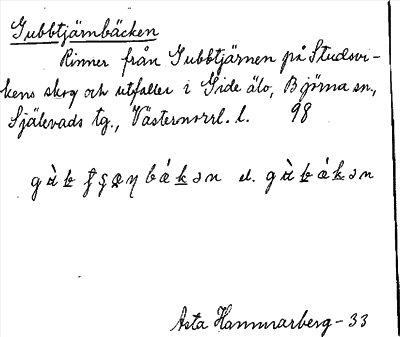 Gubbtjärnbäcken
Rinner från Gubbtjärnen på Studsvi-
kens skog och utfaller i Gide älv, Björna sn,
Själevads tg., Västernorrl. l. 98
el.
Asta Hammarberg - 33